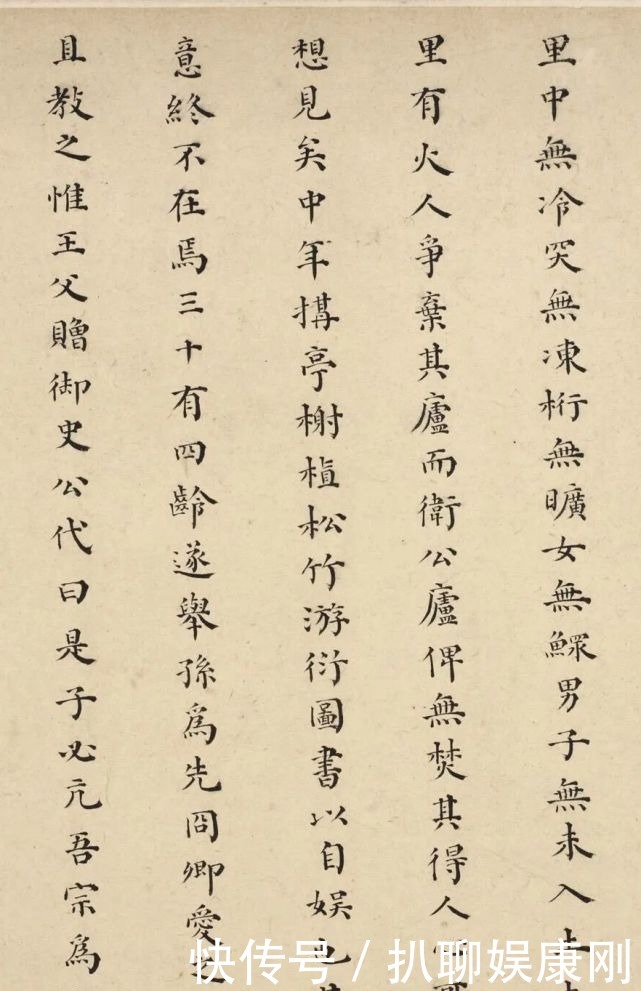 里中無冷突無凍桁無曠女無鰥男子無未入土
里有火人爭棄其廬而衛公廬俾無焚其得人
想見矣中年搆亭榭植松竹游衍圖書以自娛也
意終不在焉三十有四齡遂舉孫為先冏卿愛之
且教之惟王父贈御史公代曰是子必亢吾宗為
快传号 / 扒聊娱康刚